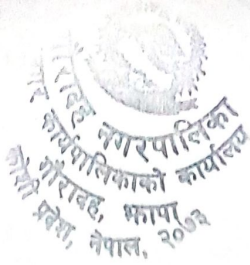 गौरादह नगरपालिका
नगर कार्यपालिकाको कार्यालय
गौरादह, झापा
कोशी प्रदेश, नेपाल, २०७३